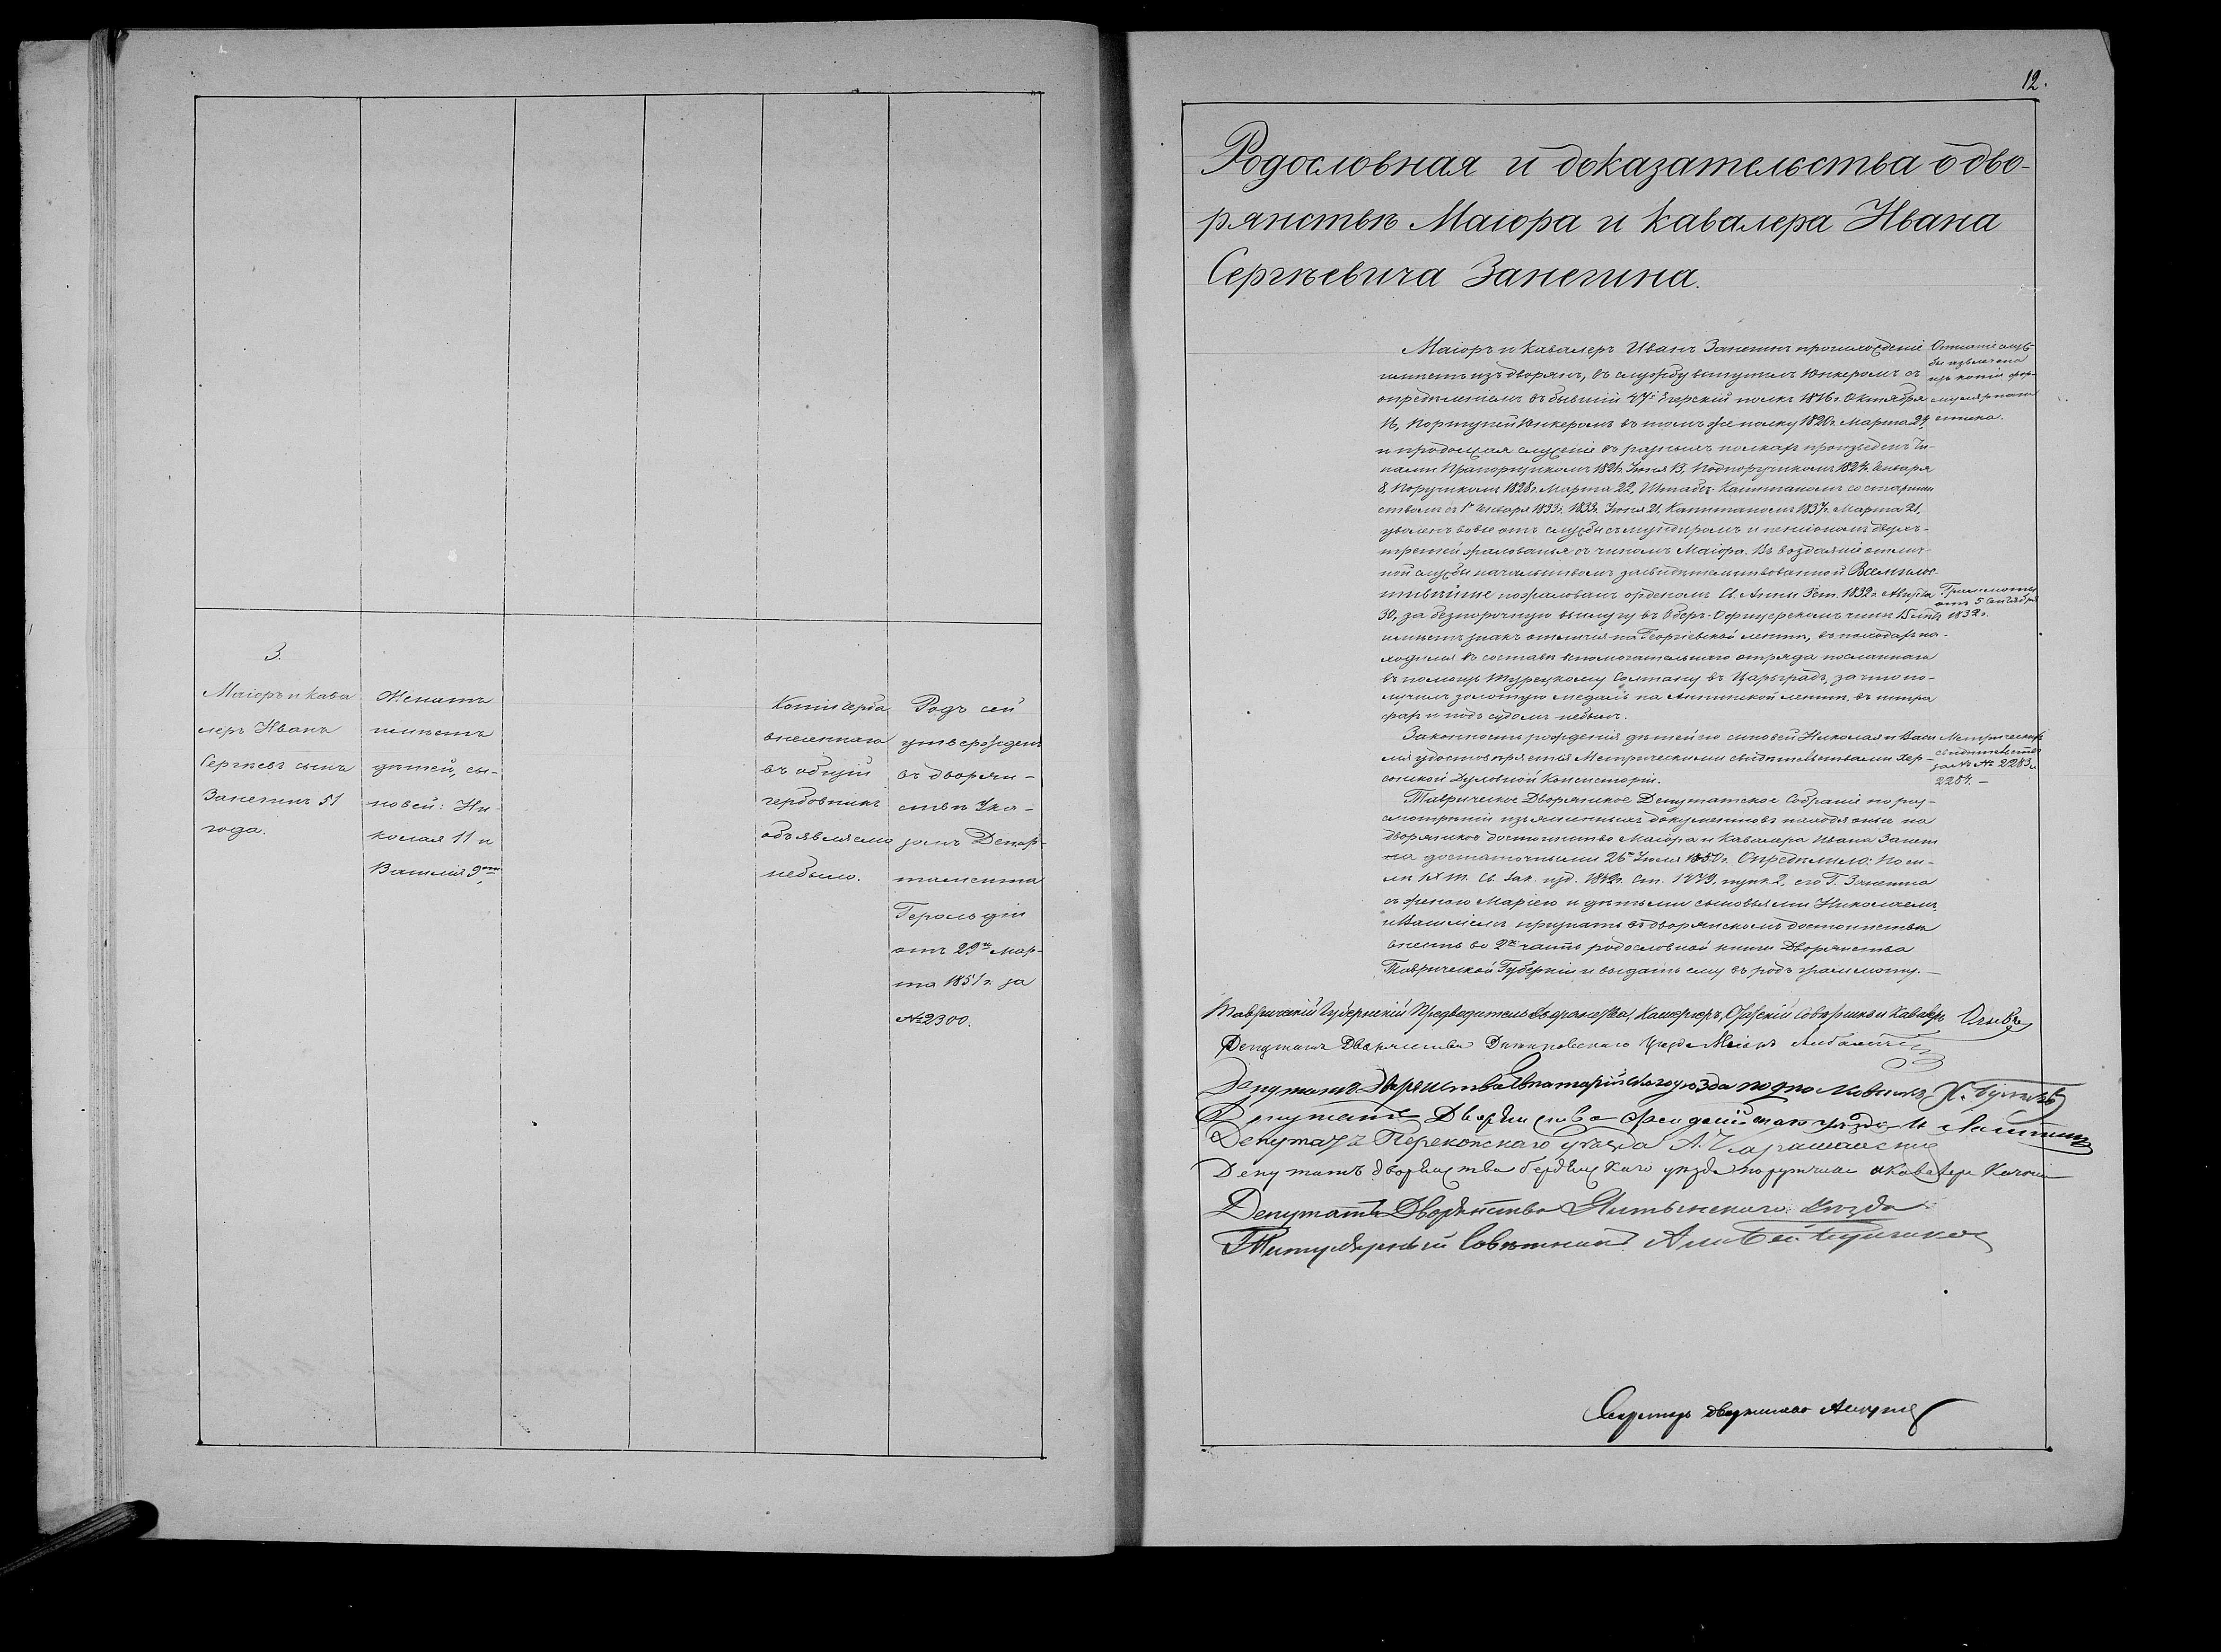 3.
Маіоръ и Кава
леръ Иванъ
Сергѣевъ сынъ
Занегинъ 51
года.
Женатъ
имѣетъ
дѣтей, сы-
новей: Ни-
колая 11 и
Василія 9
Копіи герба
внесеннаго
въ общій
гербовникъ
объявляемо
небыло.
Родъ сей
утвержденъ
въ дворян-
ствѣ Ука-
зомъ Депар-
тамента
Герольдіи
отъ 29го Мар-
та 1851 г. за
№ 2300.
12.
Родословная и доказательства о дво-
рянствѣ Маіора и Кавалера Ивана
Сергѣевича Занегина.
Маіоръ и Кавалеръ Иванъ Занегинъ происхожденіе
имѣетъ изъ дворянъ, въ службу вступилъ Юнкеромъ съ
опредѣленіемъ въ бывшій 47й Егерскій полкъ 1816 г. Октября
16, Портупей Юнкеромъ въ томъ же полку 1820 г. Марта 24,
и продолжая служеніе въ разныхъ полкахъ произведенъ чи-
нами Прапорщикомъ 1821 г. Іюня 13, Подпоручикомъ 1824 г. Января
8, Поручикомъ 1828 г. Марта 22, Штабсъ-Капитаномъ со старшин
ствомъ съ 1го Января 1833 г. 1833 г. Іюня 21, Капитаномъ 1837 г. Марта 21,
уволенъ вовсе отъ службы съ мундиромъ и пенсіономъ двухъ-
третей жалованья съ чиномъ Маіора. Въ воздаяніе отлич-
ной службы начальствомъ засвидѣтельствованной Всемилос-
тивѣйше пожалованъ орденомъ Св. Анны 3 ст. 1832 г. Августа
30, за безпорочную выслугу въ Оберъ-Офицерскомъ чинѣ 15 лѣтъ
имѣетъ знакъ отличія на Георгіевской лентѣ, въ походахъ на-
ходился въ составѣ вспомогательнаго отряда посланнаго
въ помощь Турецкому Султану въ Царьградъ, за что по-
лучилъ золотую медаль на Аннинской лентѣ, въ штра
фахъ и подъ судомъ небылъ.
Законность рожденія дѣтей его сыновей Николая и Васи
лія удостовѣряется Метрическими свидѣтельствами Хер-
сонской Духовной Консисторіи.
Таврическое Дворянское Депутатское Собраніе по раз-
смотрѣніи изъясненныхъ документовъ находя оные на
дворянское достоинство Маіора и Кавалера Ивана Занеги
на достаточными 26го Іюля 1850 г. Опредѣлило: По си-
лѣ IX т. Св. Зак. изд. 1842 г. Ст. 1479, пунк. 2, его Г. Занегина
съ женою Маріею и дѣтьми сыновьями Николаемъ
и Василіемъ признать въ дворянскомъ достоинствѣ
внесть во 2ю часть родословной книги Дворянства
Таврической Губерніи и выдать ему въ родъ грамоту.
Описаніе служ-
бы извлечено
изъ копіи фор-
мулярнаго
списка.
Грамота
отъ 5 Сентября
1832 г.
Метрическія
свидѣтельства
за №№ 2283 и
2284.
Таврическій Губернскій Предводитель Дворянства, Камергеръ, Статскій Совѣтникъ и Кавалеръ Оливъ
Депутатъ Дворянства Днѣпровскаго Уѣзда Маіоръ
Депутатъ Дворянства Евпаторійскаго уѣзда подполковникъ
Депутатъ Дворянства Феодосійскаго уѣзда
Депутатъ Перекопскаго уѣзда А.
Депутатъ дворянства бердянскаго уѣзда поручикъ и Кавалеръ
Депутатъ Дворянства Ялтинскаго Уѣзда
Титулярный Совѣтникъ
Секретарь дворянства